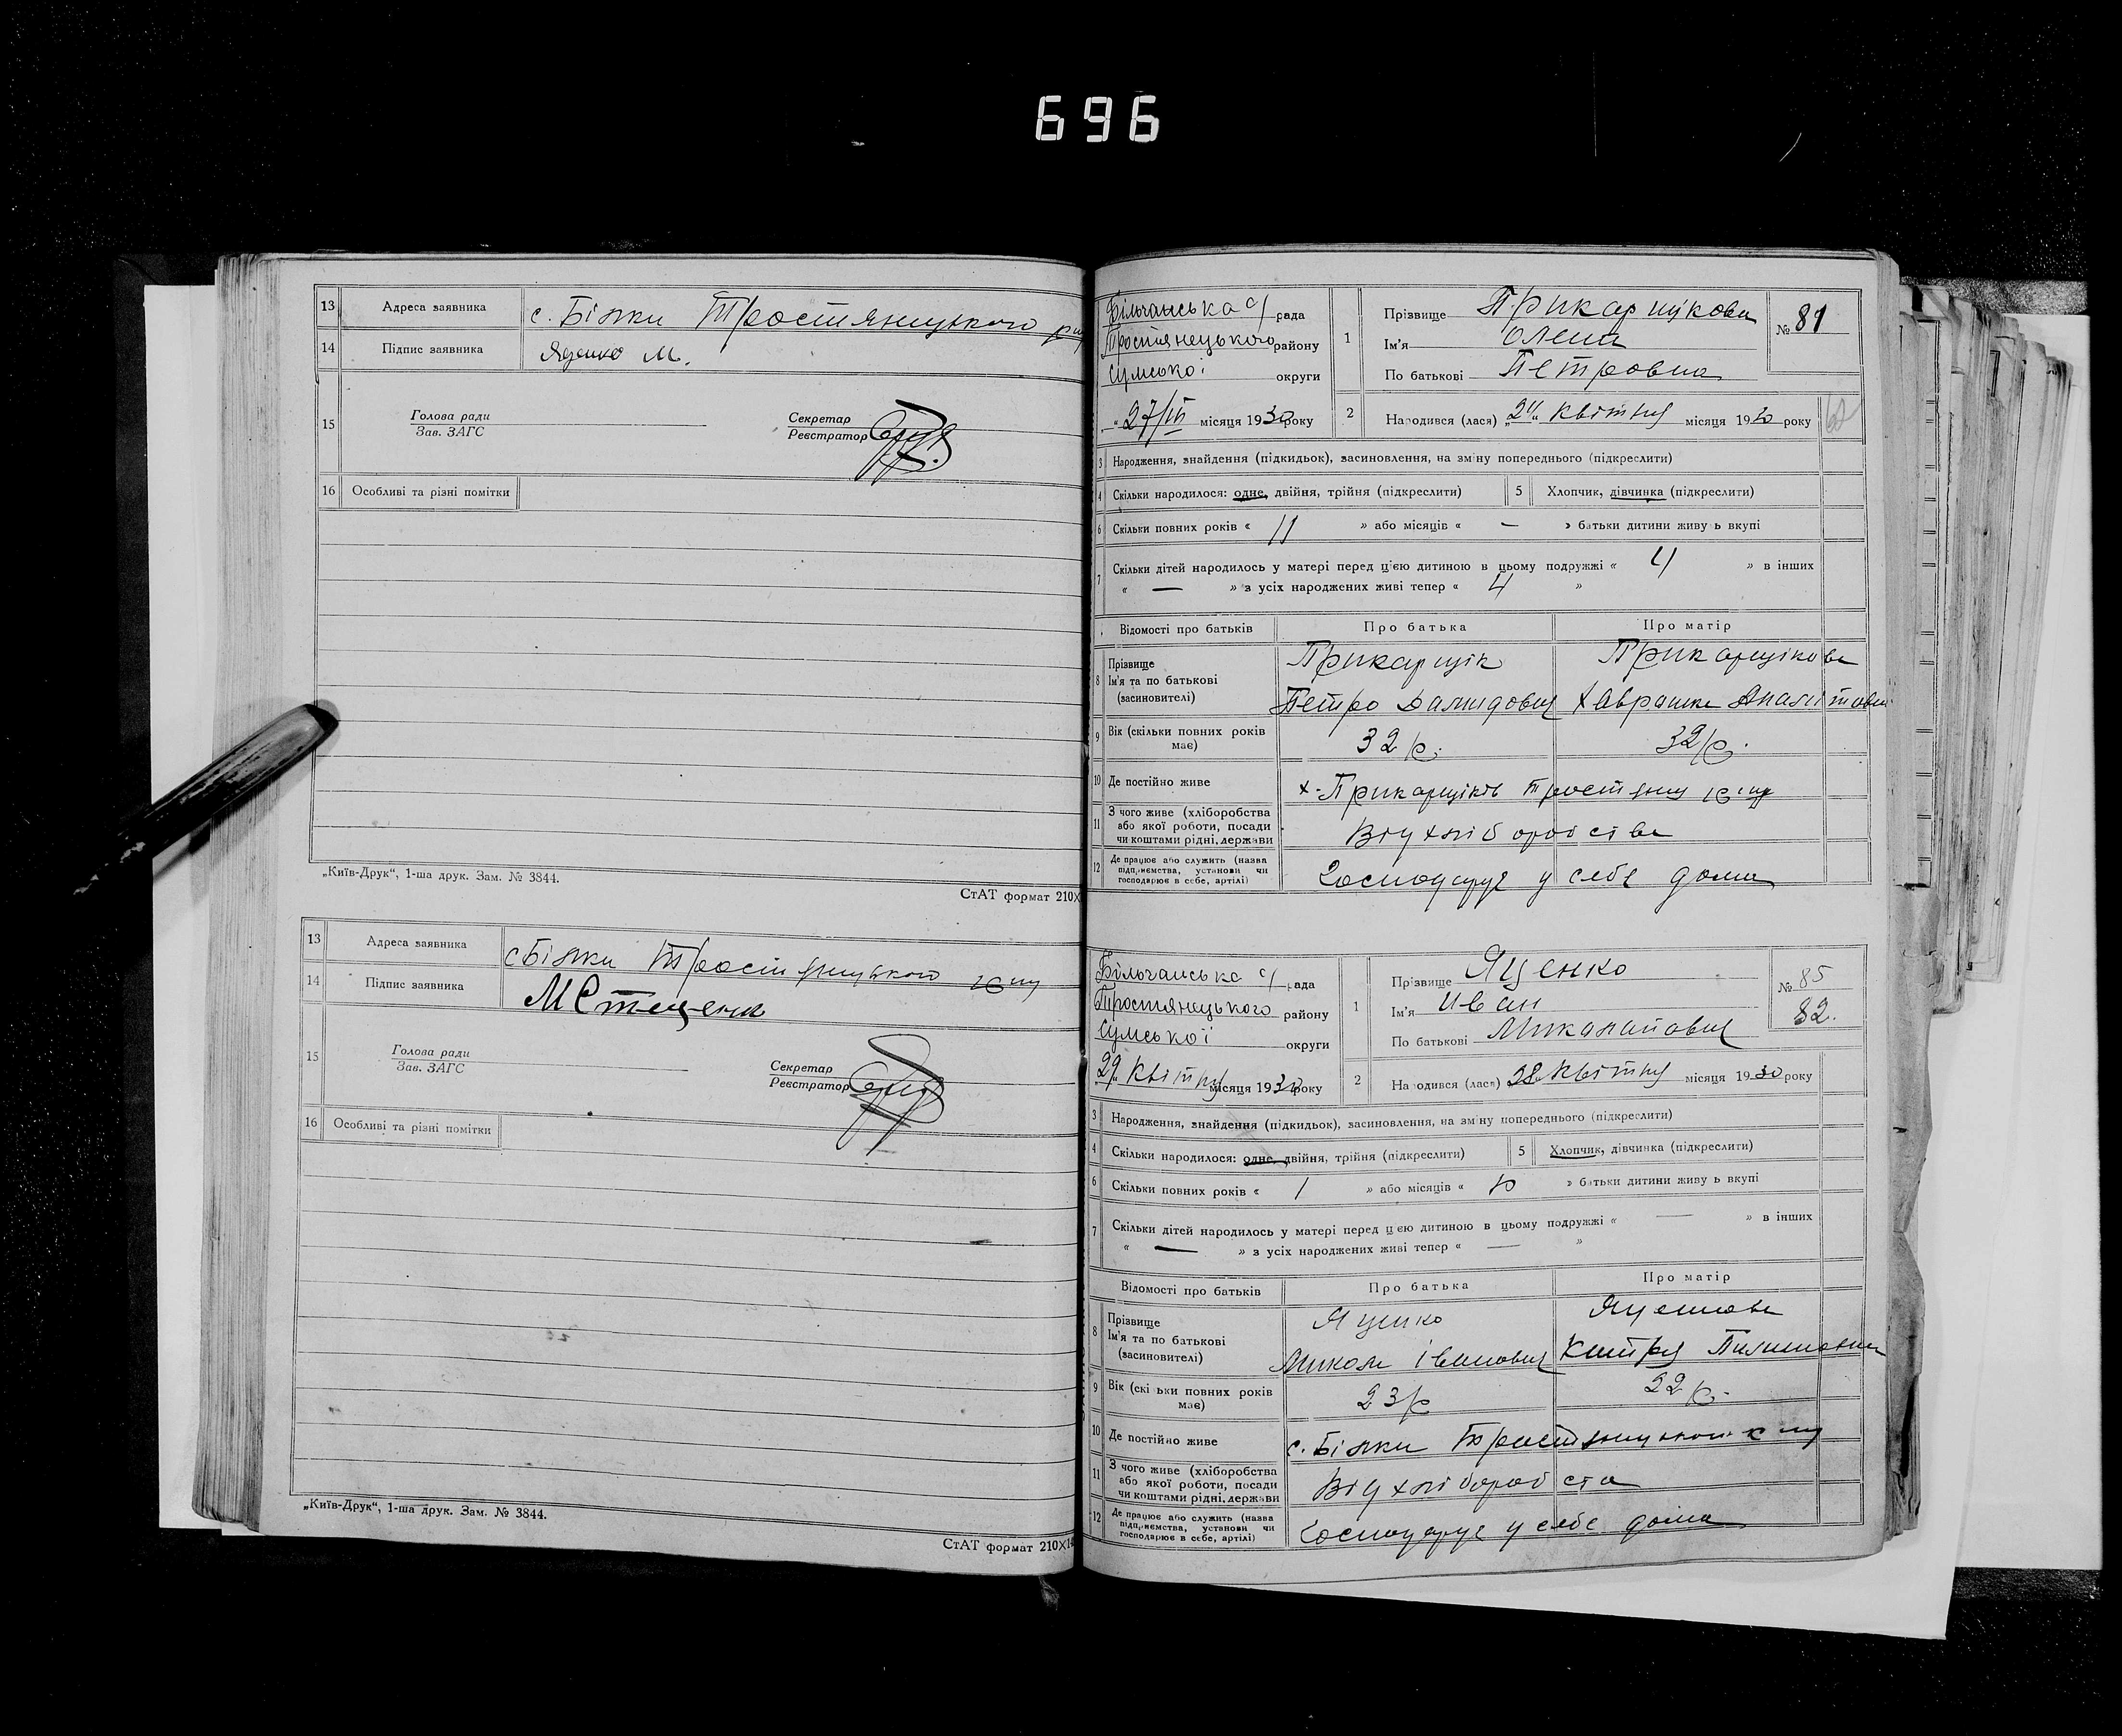 696
13 Адреса заявника с. Білки Тростянецького
14 Підпис заявника Яценко М.
15 Голова ради
Зав. ЗАГС
Секретар
Реєстратор
16 Особливі та різні помітки
„Київ-Друк“, 1-ша друк. Зам. № 3844.
СтАТ формат 210X
13 Адреса заявника с Білки Тростянецького
14 Підпис заявника М Стеценко
15 Голова ради
Зав. ЗАГС
Секретар
Реєстратор
16 Особливі та різні помітки
„Київ-Друк“, 1-ша друк. Зам. № 3844.
СтАТ формат 210X14
Більчанська с/ рада
Тростянецького району
Сумської округи
„27/IV місяця 1930 року
1 Прізвище Прикарщикова
Ім'я Олена
По батькові Петровна
№ 81
2 Народився (лася) квітня місяця 1930 року
3 Народження, знайдення (підкидьок), засиновлення, на зміну попереднього (підкреслити)
4 Скільки народилося: одне, двійня, трійня (підкреслити) 5 Хлопчик, дівчинка (підкреслити)
6 Скільки повних років « 11 » або місяців « — » батьки дитини живуть вкупі
7 Скільки дітей народилось у матері перед цією дитиною в цьому подружжі « 4 » в інших
« — » з усіх народжених живі тепер « 4 »
Відомості про батьків Про батька Про матір
8 Прізвище Прикарщик Прикарщікова
Ім'я та по батькові
(засиновителі) Петро Хаврошка
9 Вік (скільки повних років має) 32 р. 32 р.
10 Де постійно живе х. Прикарщіків
11 З чого живе (хліборобства або якої роботи, посади чи коштами рідні, держави Від хліборобства
12 Де працює або служить (назва підприємства, установи чи господарює в себе, артілі) Господарує у себе дома
Більчанська с/ рада
Тростянецького району
Сумської округи
„29“ Квітня місяця 1930 року
1 Прізвище Яценко
Ім'я Иван
По батькові Миколайович
№ 85
82.
2 Народився (лася) 28 квітня місяця 1930 року
3 Народження, знайдення (підкидьок), засиновлення, на зміну попереднього (підкреслити)
4 Скільки народилося: одне, двійня, трійня (підкреслити) 5 Хлопчик, дівчинка (підкреслити)
6 Скільки повних років « 1 » або місяців « » батьки дитини живуть вкупі
7 Скільки дітей народилось у матері перед цією дитиною в цьому подружжі « — » в інших
« — » з усіх народжених живі тепер « — »
Відомості про батьків Про батька Про матір
8 Прізвище Яценко Яценкова
Ім'я та по батькові
(засиновителі) Микола Іванович Катря Пилиповна
9 Вік (скільки повних років має) 23 р 22 р.
10 Де постійно живе с. Білки
11 З чого живе (хліборобства або якої роботи, посади чи коштами рідні, держави Від хліборобста
12 Де працює або служить (назва підприємства, установи чи господарює в себе, артілі) Господарує у себе дома